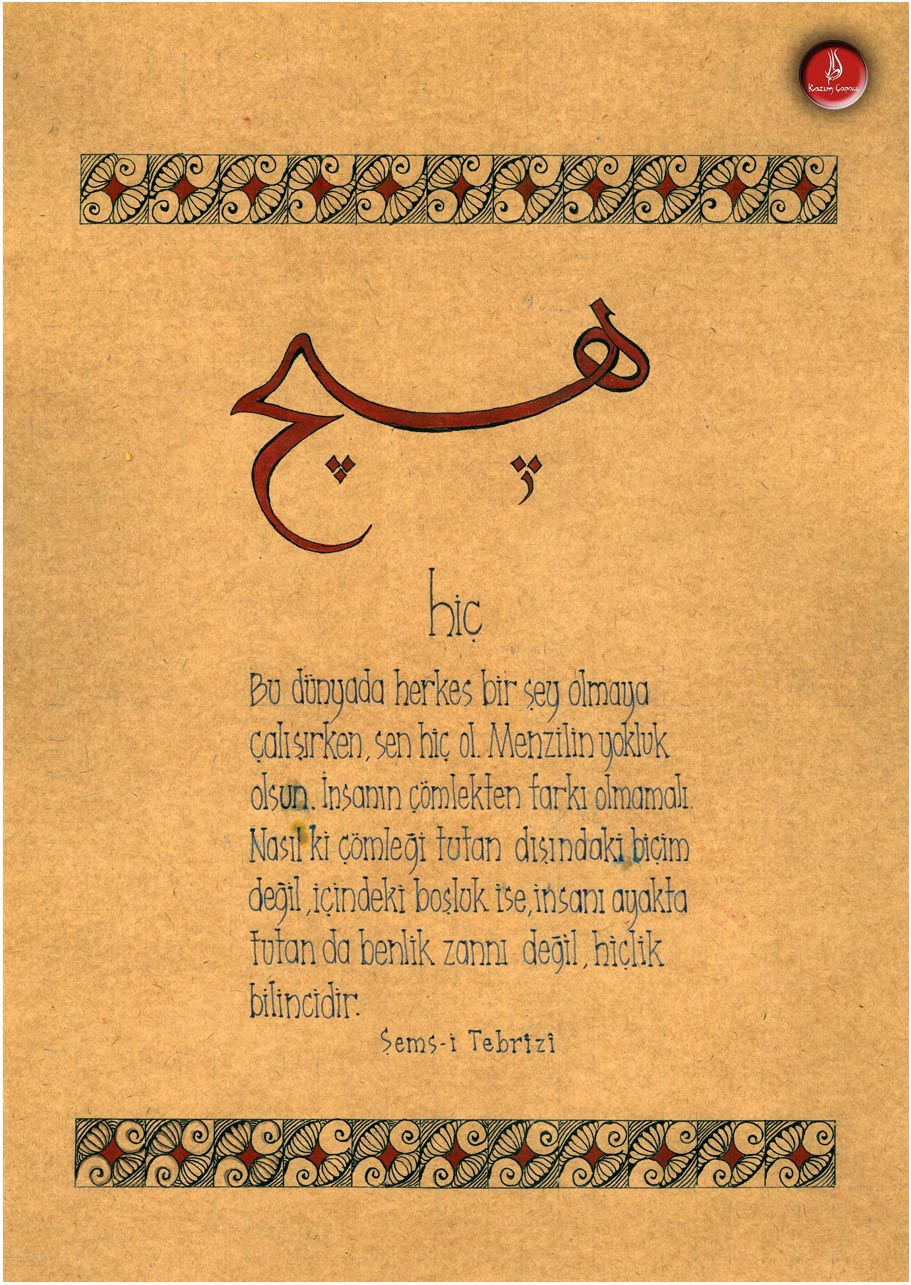 Kazım Çapacı
هيچ
hiç
Bu dünyada herkes bir şey olmaya
çalışırken, sen hiç ol. Menzilin yokluk
olsun. İnsanın çömlekten farkı olmamalı.
Nasıl ki çömleği tutan dışındaki biçim
değil, içindeki boşluk ise, insanı ayakta
tutan da benlik zannı değil, hiçlik
bilincidir.
Şems-i Tebrîzî